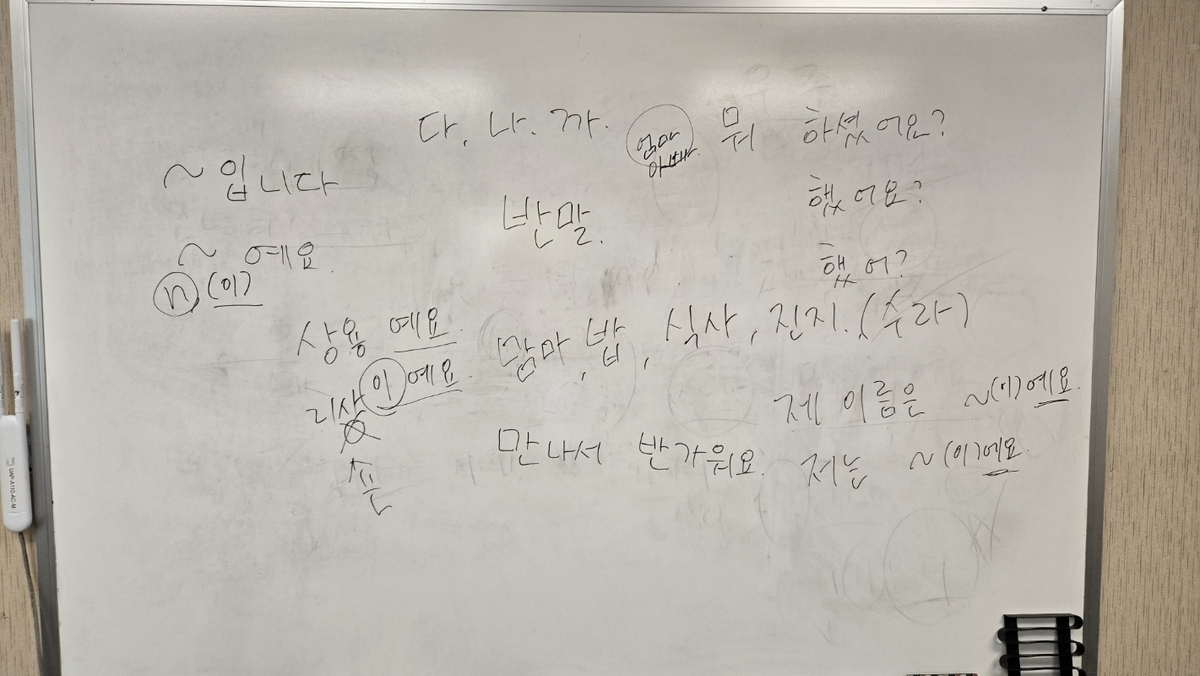 다, 나. 까.
엄마
아빠
뭐 하셨어요?
했어요?
했어?
~입니다
~ 예요
n (이)
반말.
상용 예요.
리상 이 예요.
맘마, 밥, 식사, 진지. (수라)
제 이름은 ~(이)예요.
만나서 반가워요.
저는 ~(이)예요.